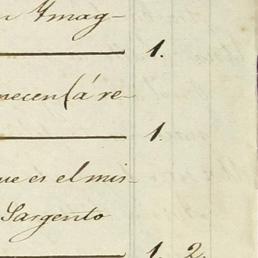 Ymag-
1.
necen (á re-
1.
ue es el mis-
Sargento
1. 2.